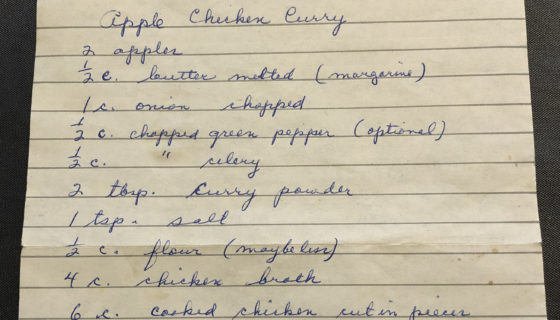 Apple Chicken Curry
2 apples
½ c. butter melted (margarine)
1 c. onion chopped
½ c. chopped green pepper (optional)
½ c. " celery
2 tbsp. curry powder
1 tsp. salt
½ c. flour (maybe less)
4 c. chicken broth
6 c. cooked chicken cut in pieces